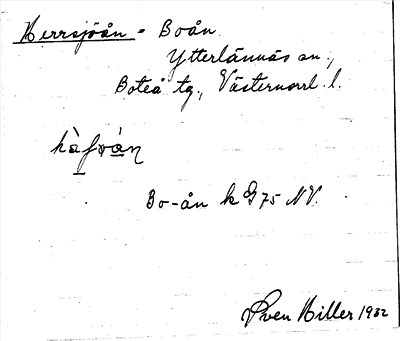 Herrsjöån = Boån.
Ytterlännäs sn.,
Boteå tg., Västernorrl. l.
Bo-ån k G 75 NV.
Sven Hiller 1932